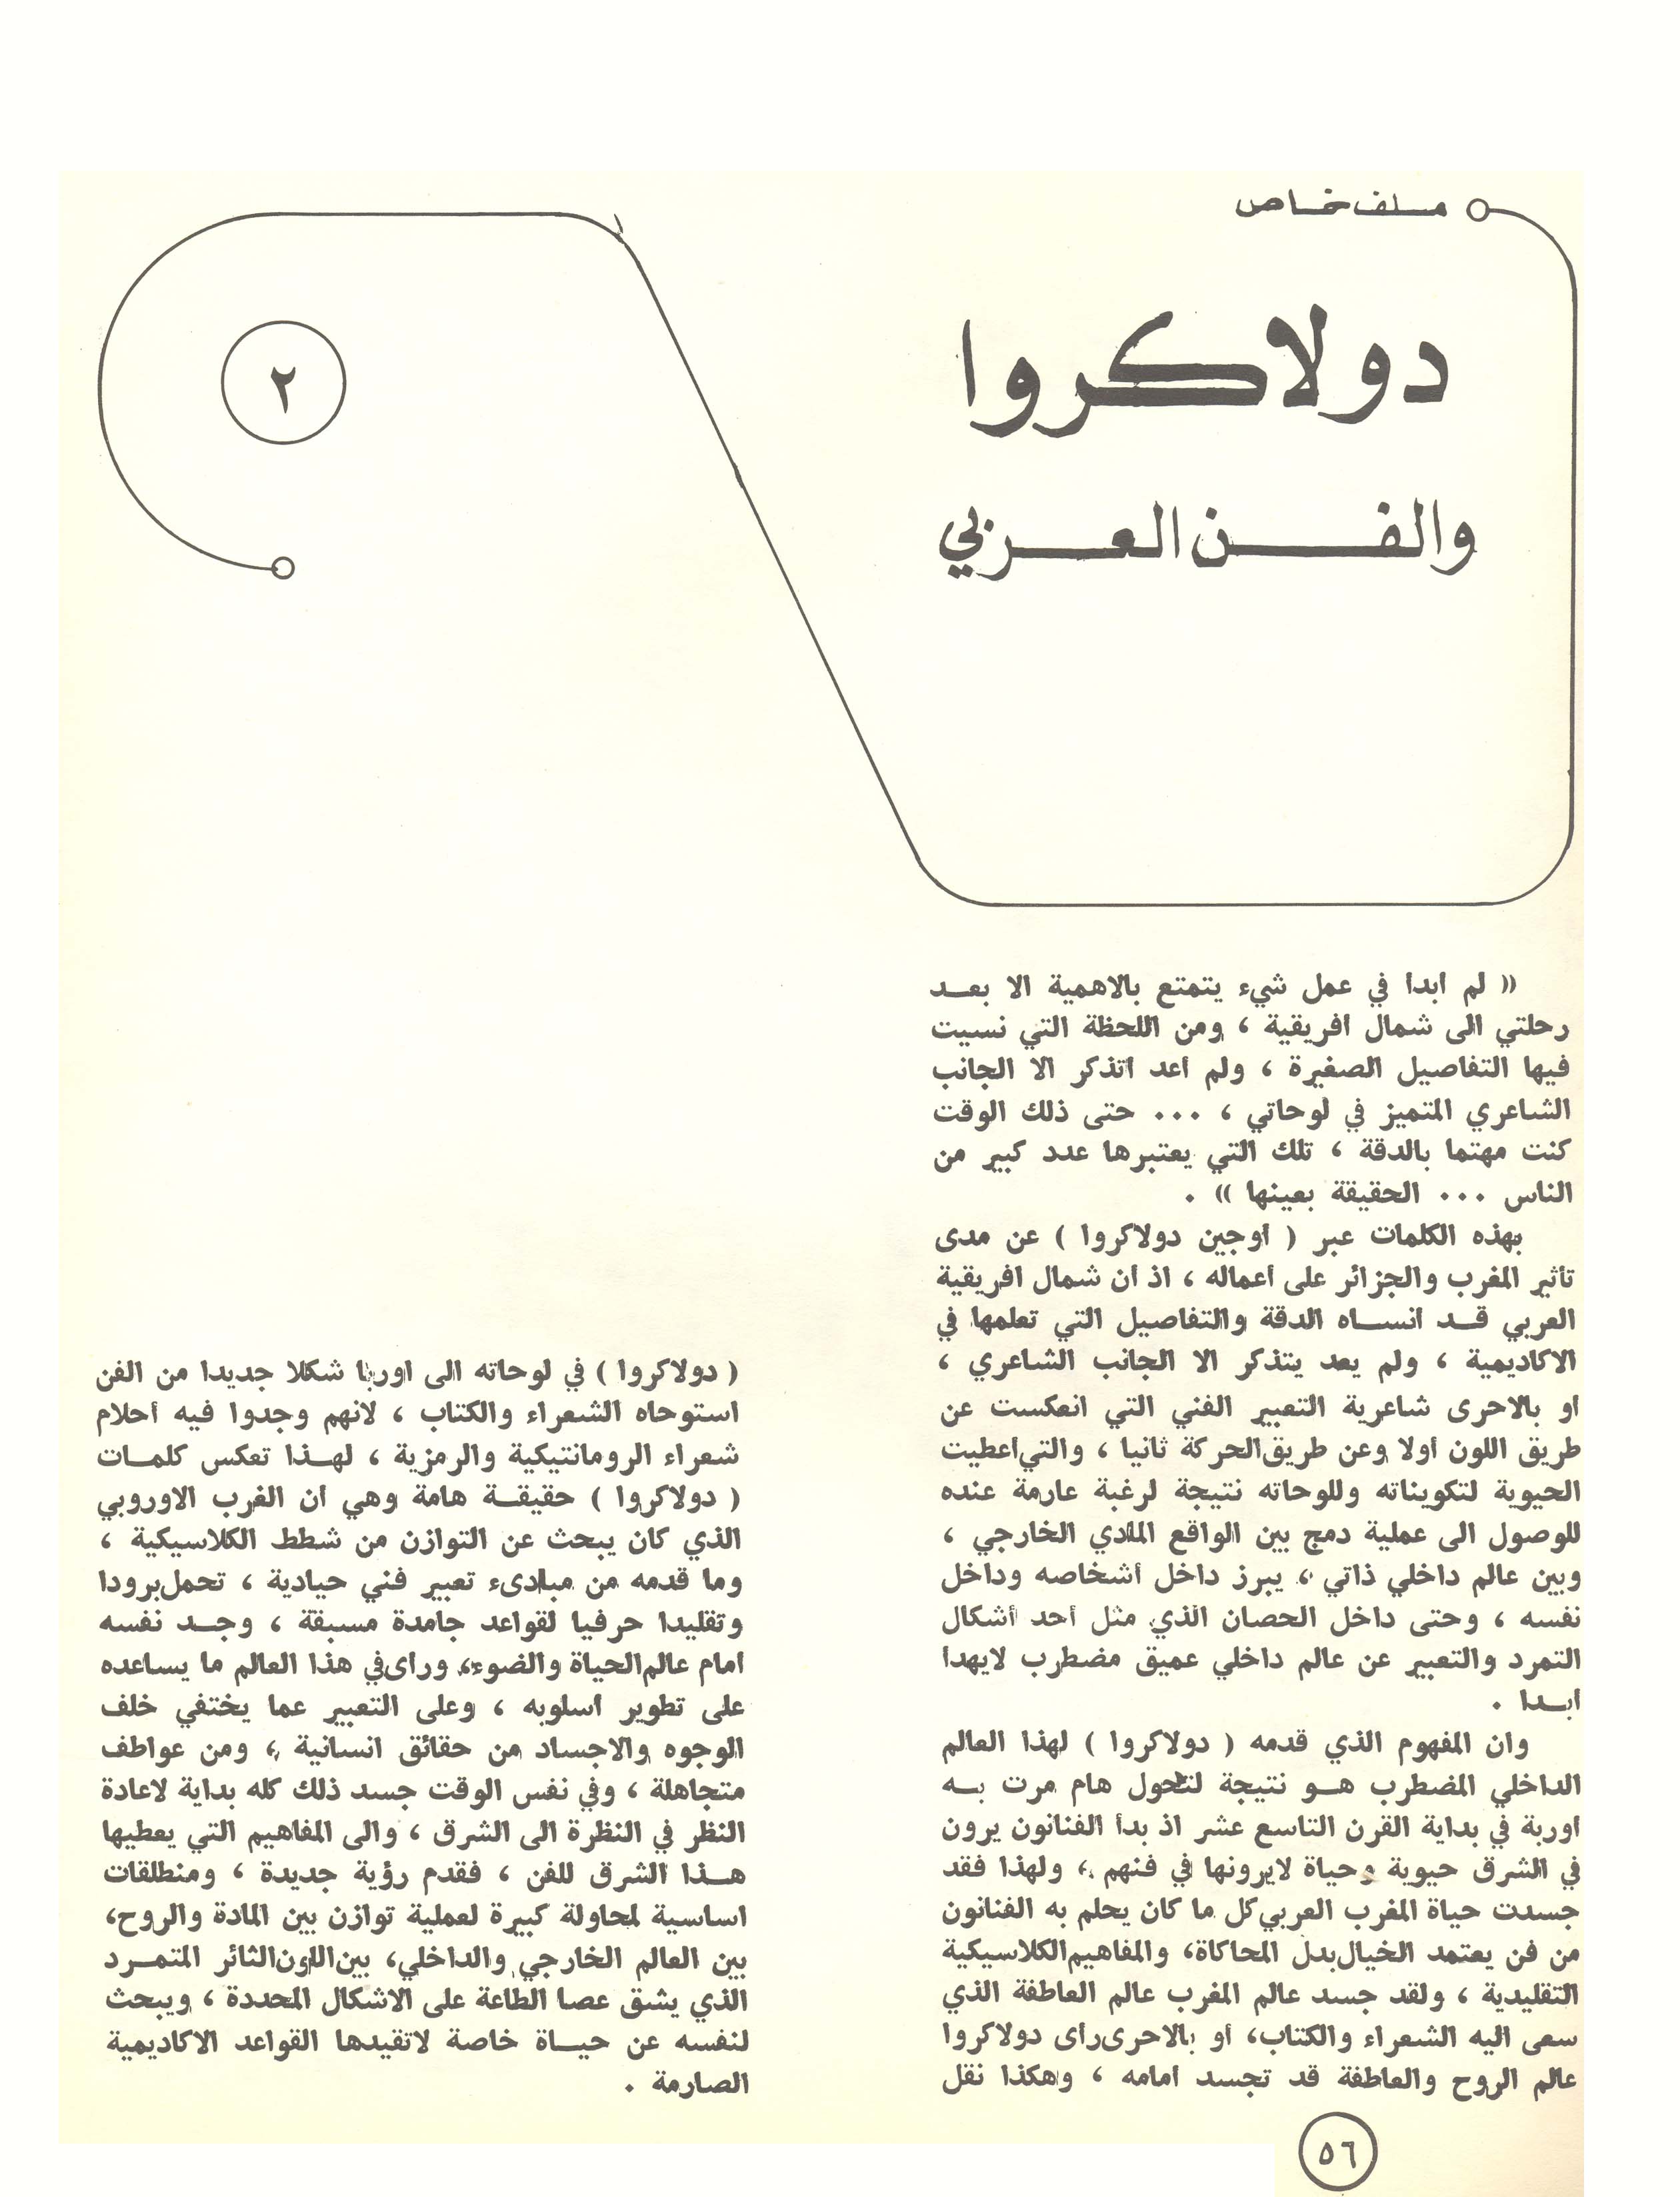 ملف خاص
دولاكروا
والفن العربي
٢
(( لم ابدا في عمل شيء يتمتع بالاهمية الا بعد
رحلتي الى شمال افريقية ، ومن اللحظة التي نسيت
فيها التفاصيل الصغيرة ، ولم أعد اتذكر الا الجانب
الشاعري المتميز في لوحاتي ، ... حتى ذلك الوقت
كنت مهتما بالدقة ، تلك التي يعتبرها عدد كبير من
الناس ... الحقيقة بعينها )) .
بهذه الكلمات عبر ( اوجين دولاكروا ) عن مدى
تأثير المغرب والجزائر على أعماله ، اذ أن شمال افريقية
العربي قد انساه الدقة والتفاصيل التي تعلمها في
الاكاديمية ، ولم يعد يتذكر الا الجانب الشاعري ،
او بالاحرى شاعرية التعبير الفني التي انعكست عن
طريق اللون أولا وعن طريق الحركة ثانيا ، والتي اعطيت
الحيوية لتكويناته وللوحاته نتيجة لرغبة عارمة عنده
للوصول الى عملية دمج بين الواقع المادي الخارجي ،
وبين عالم داخلي ذاتي ، يبرز داخل أشخاصه وداخل
نفسه ، وحتى داخل الحصان الذي مثل أحد أشكال
التمرد والتعبير عن عالم داخلي عميق مضطرب لايهدا
ابدا .
وان المفهوم الذي قدمه ( دولاكروا ) لهذا العالم
الداخلي المضطرب هو نتيجة لتحول هام مرت به
اوربة في بداية القرن التاسع عشر اذ بدأ الفنانون يرون
في الشرق حيوية وحياة لايرونها في فنهم ، ولهذا فقد
جسدت حياة المغرب العربي كل ما كان يحلم به الفنانون
من فن يعتمد الخيال بدل المحاكاة، والمفاهيم الكلاسيكية
التقليدية ، ولقد جسد عالم المغرب عالم العاطفة الذي
سعى اليه الشعراء والكتاب، أو بالاحرى رأى دولاكروا
عالم الروح والعاطفة قد تجسد امامه ، وهكذا نقل
( دولاكروا ) في لوحاته الى اوربا شكلا جديدا من الفن
استوحاه الشعراء والكتاب ، لانهم وجدوا فيه أحلام
شعراء الرومانتيكية والرمزية ، لهذا تعكس كلمات
( دولاكروا ) حقيقة هامة وهي أن الغرب الاوروبي
الذي كان يبحث عن التوازن من شطط الكلاسيكية ،
وما قدمه من مبادىء تعبير فني حيادية ، تحمل برودا
وتقليدا حرفيا لقواعد جامدة مسبقة ، وجد نفسه
امام عالم الحياة والضوء، وراى في هذا العالم ما يساعده
على تطوير اسلوبه ، وعلى التعبير عما يختفي خلف
الوجوه والاجساد من حقائق انسانية ، ومن عواطف
متجاهلة ، وفي نفس الوقت جسد ذلك كله بداية لاعادة
النظر في النظرة الى الشرق ، والى المفاهيم التي يعطيها
هذا الشرق للفن ، فقدم رؤية جديدة ، ومنطلقات
اساسية لمحاولة كبيرة لعملية توازن بين المادة والروح،
بين العالم الخارجي والداخلي، بين اللون الثائر المتمرد
الذي يشق عصا الطاعة على الاشكال المحددة ، ويبحث
لنفسه عن حياة خاصة لاتقيدها القواعد الاكاديمية
الصارمة .
٥٦